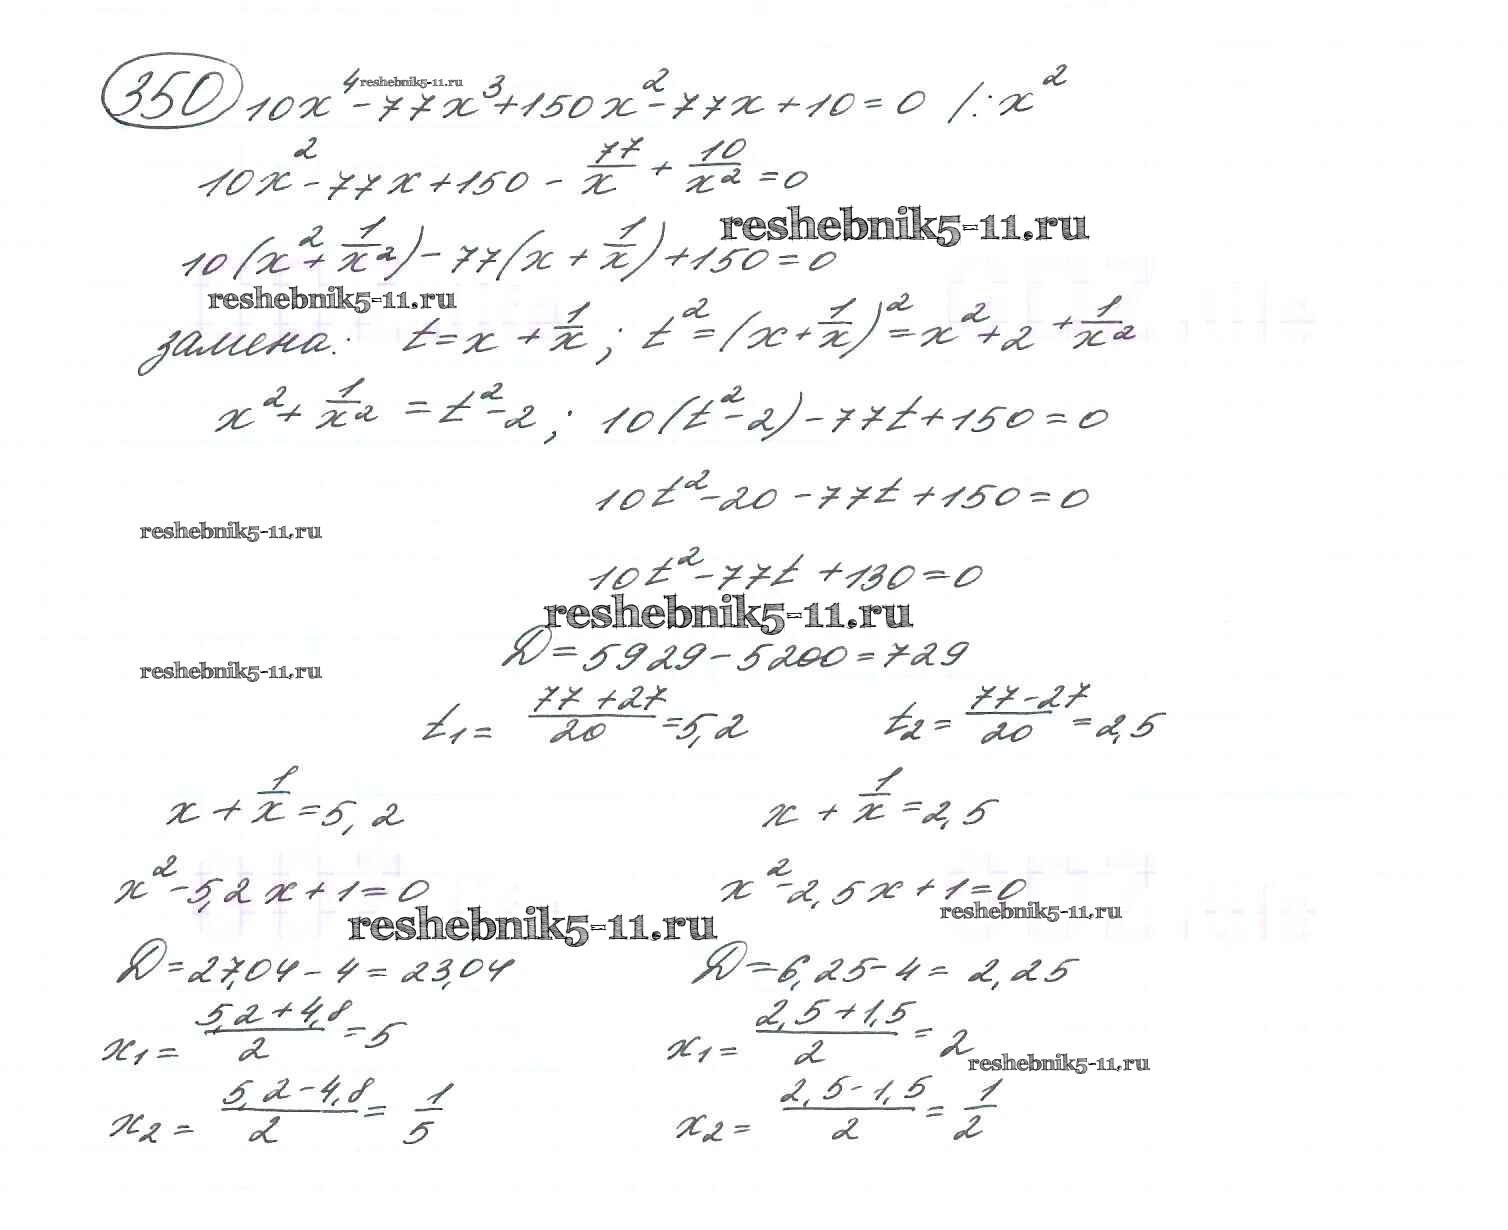 350 10x⁴ - 77x³ + 150x² - 77x + 10 = 0 /: x²
reshebnik5-11.ru
10x² - 77x + 150 - 77/x + 10/x² = 0
reshebnik5-11.ru
10(x² + 1/x²) - 77(x + 1/x) + 150 = 0
reshebnik5-11.ru
замена: t = x + 1/x ; t² = (x + 1/x)² = x² + 2 + 1/x²
x² + 1/x² = t² - 2 ; 10(t² - 2) - 77t + 150 = 0
10t² - 20 - 77t + 150 = 0
reshebnik5-11.ru
10t² - 77t + 130 = 0
reshebnik5-11.ru
D = 5929 - 5200 = 729
reshebnik5-11.ru
t₁ = (77 + 27)/20 = 5,2 t₂ = (77 - 27)/20 = 2,5
x + 1/x = 5,2 x + 1/x = 2,5
x² - 5,2x + 1 = 0 x² - 2,5x + 1 = 0
reshebnik5-11.ru reshebnik5-11.ru
D = 27,04 - 4 = 23,04 D = 6,25 - 4 = 2,25
x₁ = (5,2 + 4,8)/2 = 5 x₁ = (2,5 + 1,5)/2 = 2
reshebnik5-11.ru
x₂ = (5,2 - 4,8)/2 = 1/5 x₂ = (2,5 - 1,5)/2 = 1/2